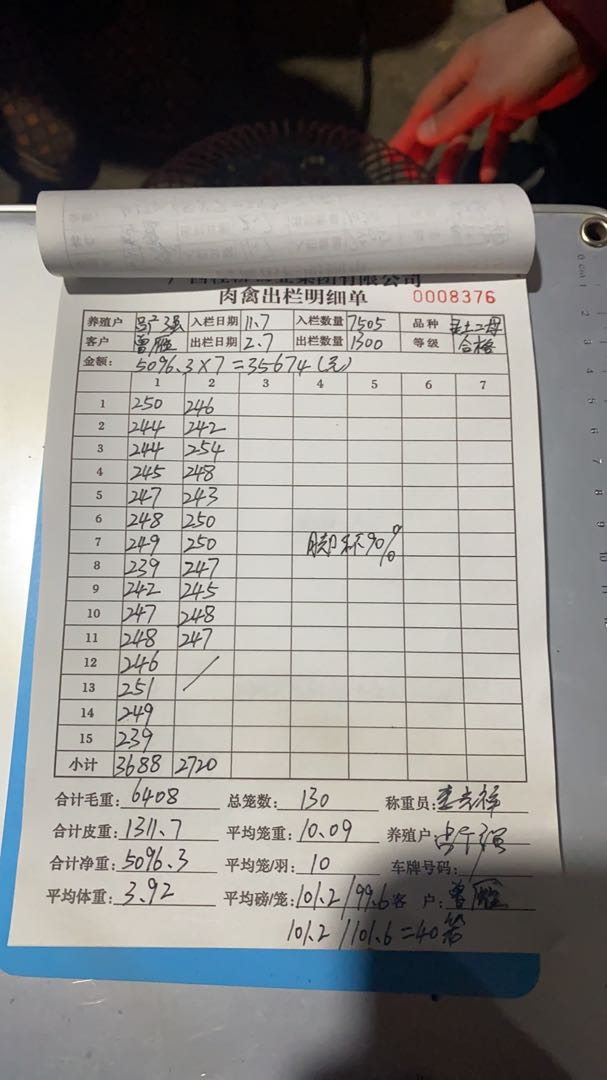 集团有限公司
肉禽出栏明细单 0008376
养殖户 入栏日期 11.7 入栏数量 7505 品种 土二母
客户 曾雁 出栏日期 2.7 出栏数量 1300 等级 合格
金额: 5096.3×7=35674(元)
1 2 3 4 5 6 7
1 250 246
2 244 242
3 244 254
4 245 248
5 247 243
6 248 250
7 249 250 脚环90%
8 239 247
9 242 245
10 247 248
11 248 247
12 246 /
13 251
14 249
15 239
小计 3688 2720
合计毛重: 6408 总笼数: 130 称重员:
合计皮重: 1311.7 平均笼重: 10.09 养殖户:
合计净重: 5096.3 平均笼/羽: 10 车牌号码: /
平均体重: 3.92 平均磅/笼: 101.2/99.6 客户: 曾雁
101.2/101.6=40笼